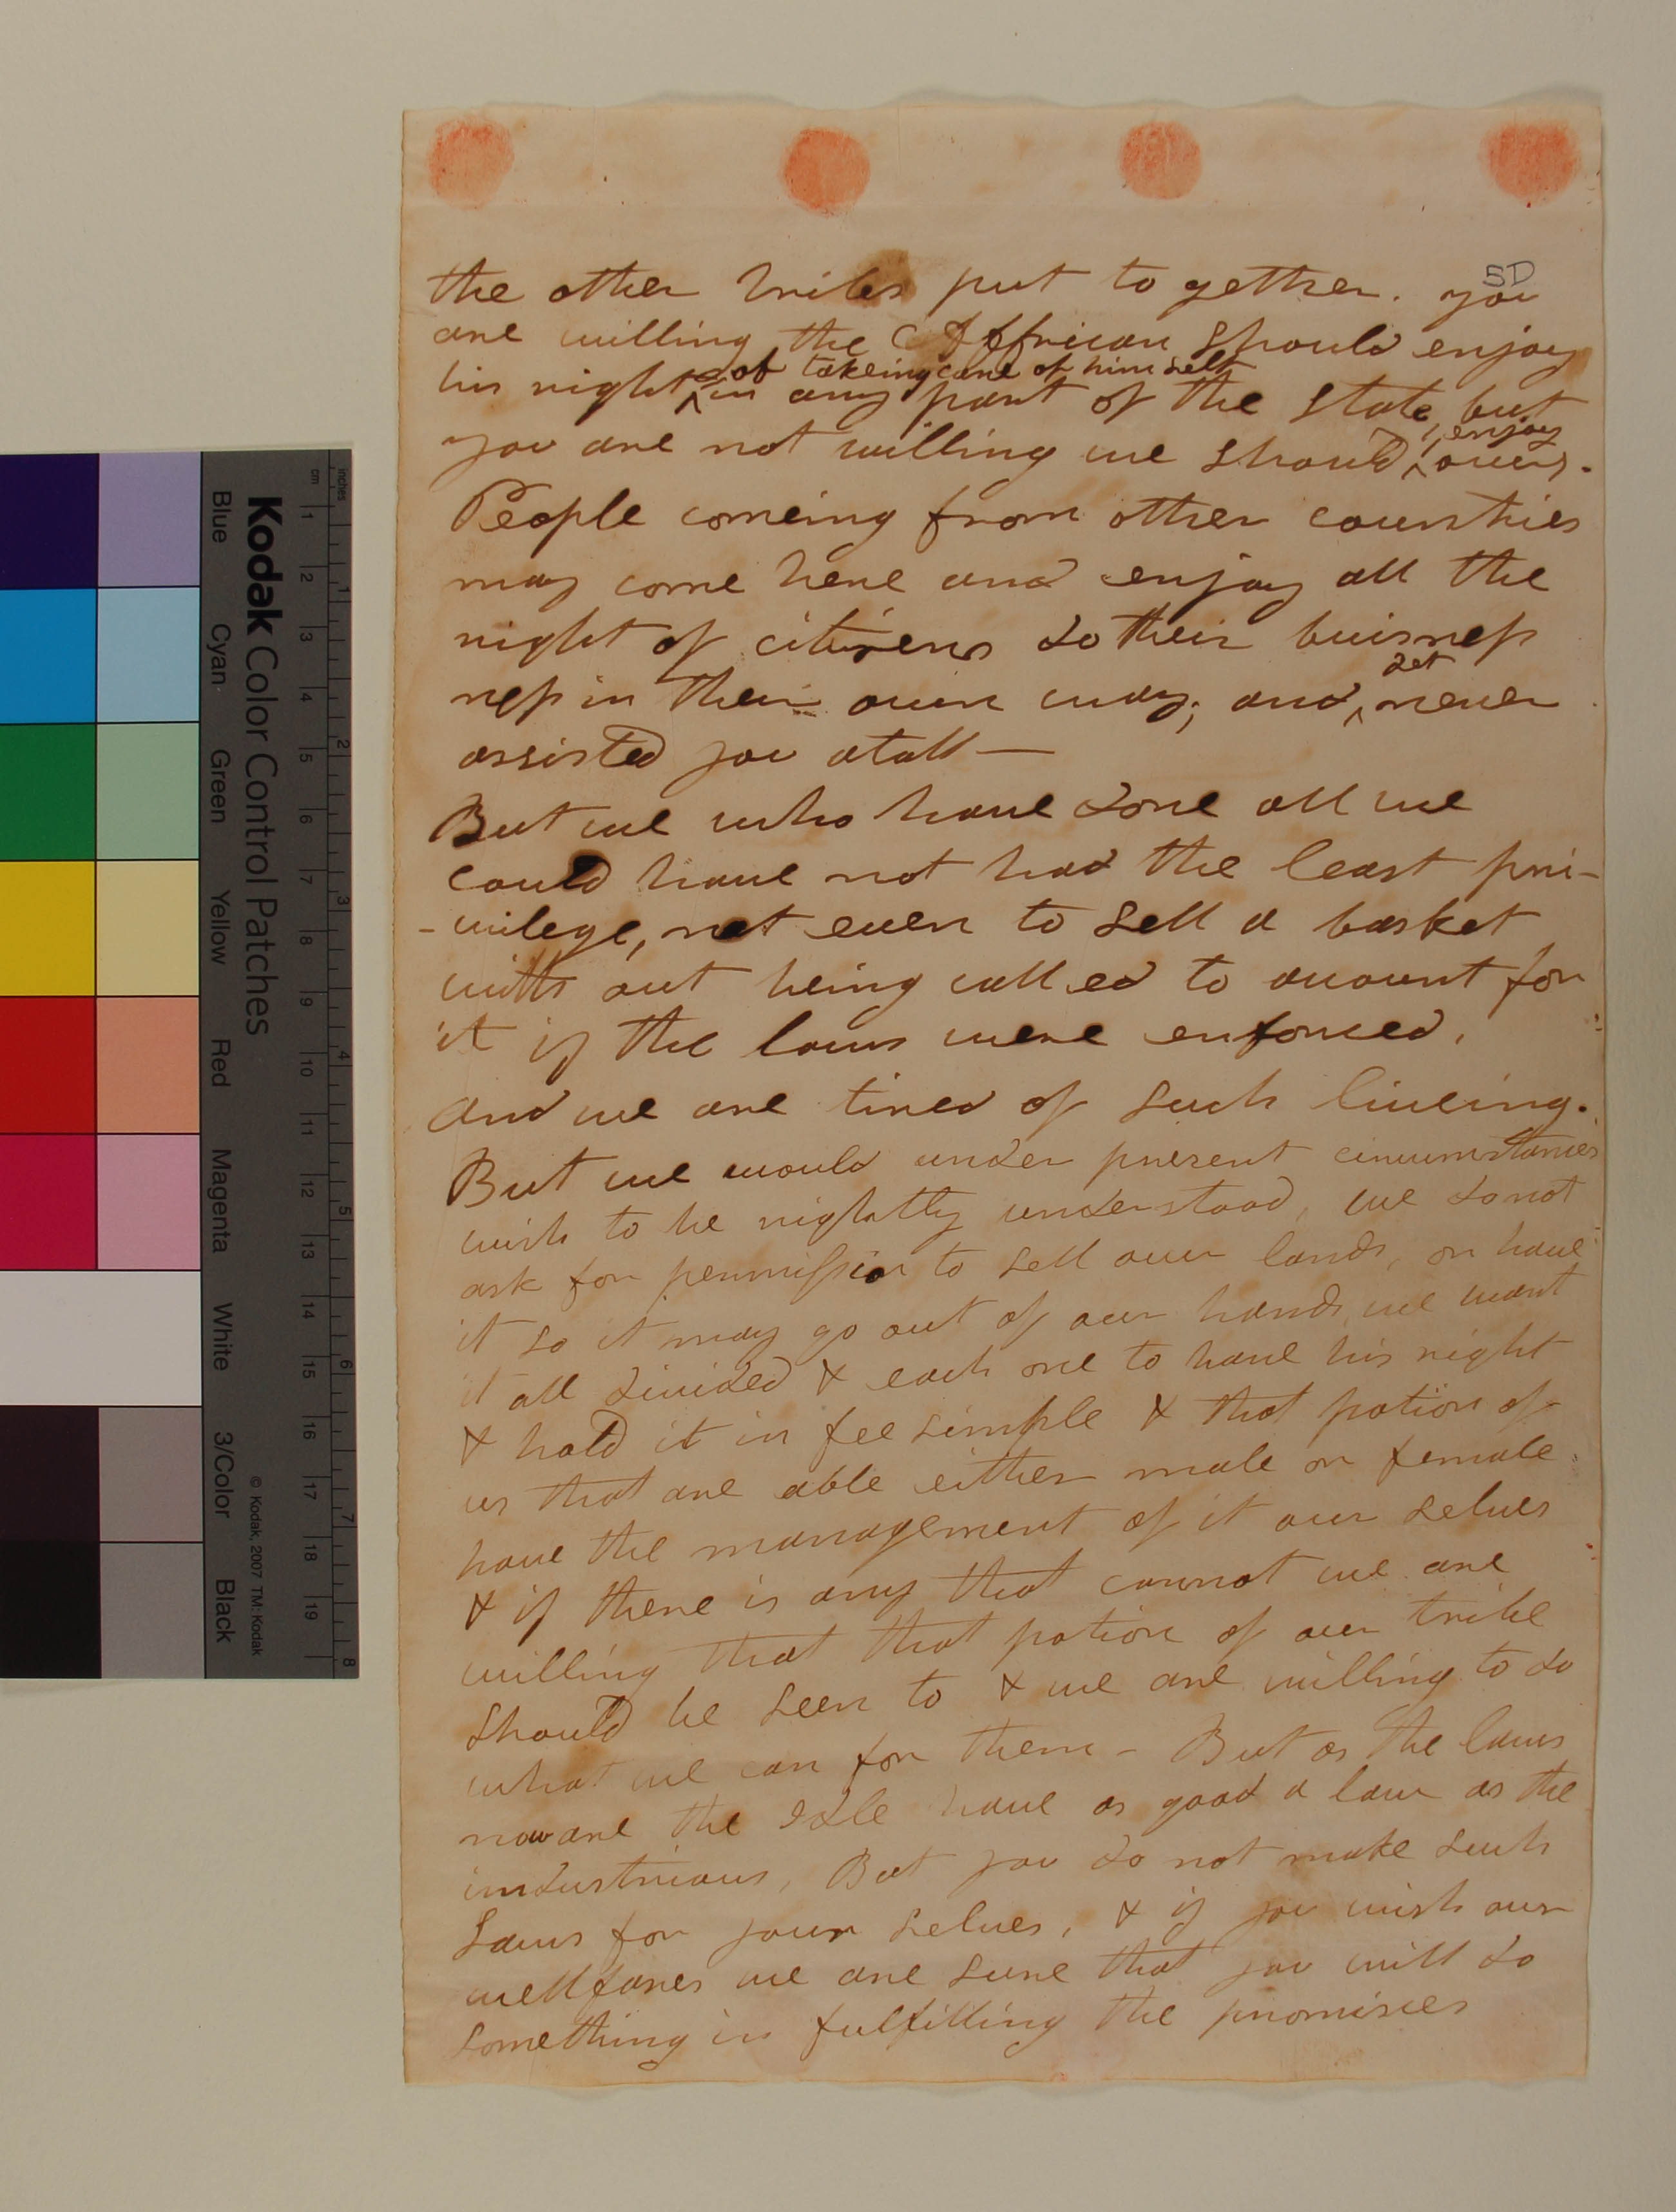 5D
the other tribes put to gether. you
are willing the Affrican should enjoy
his right ^ of takeing care of him self
in any part of the state, but
you are not willing we should ^ enjoy ours.
People comeing from other countries
may come here and enjoy all the
right of citizens do their buisness
ness in their own way; and ^ yet never
assisted you atall —
But we who have done all we
could have not had the least pri-
-vilege, not even to sell a basket
with out being called to account for
it if the laws were enforced,
and we are tired of such liveing.
But we would under present circumstances
wish to be rightly understood, we do not
ask for permission to sell our lands, or have
it so it may go out of our hands, we want
it all divided & each one to have his right
& hold it in fee simple & that potion of
us that are able either male or female
have the management of it our selves
& if there is any that cannot we are
willing that that potion of our tribe
should be seen to & we are willing to do
what we can for them - But as the laws
now are the Idle have as good a law as the
industrious, But you do not make such
Laws for your selves, & if you wish our
wellfares we are sure that you will do
something in fulfilling the promises
Kodak Color Control Patches
© Kodak, 2007 TM: Kodak
Blue Cyan Green Yellow Red Magenta White 3/Color Black
inches 1 2 3 4 5 6 7 8
cm 1 2 3 4 5 6 7 8 9 10 11 12 13 14 15 16 17 18 19